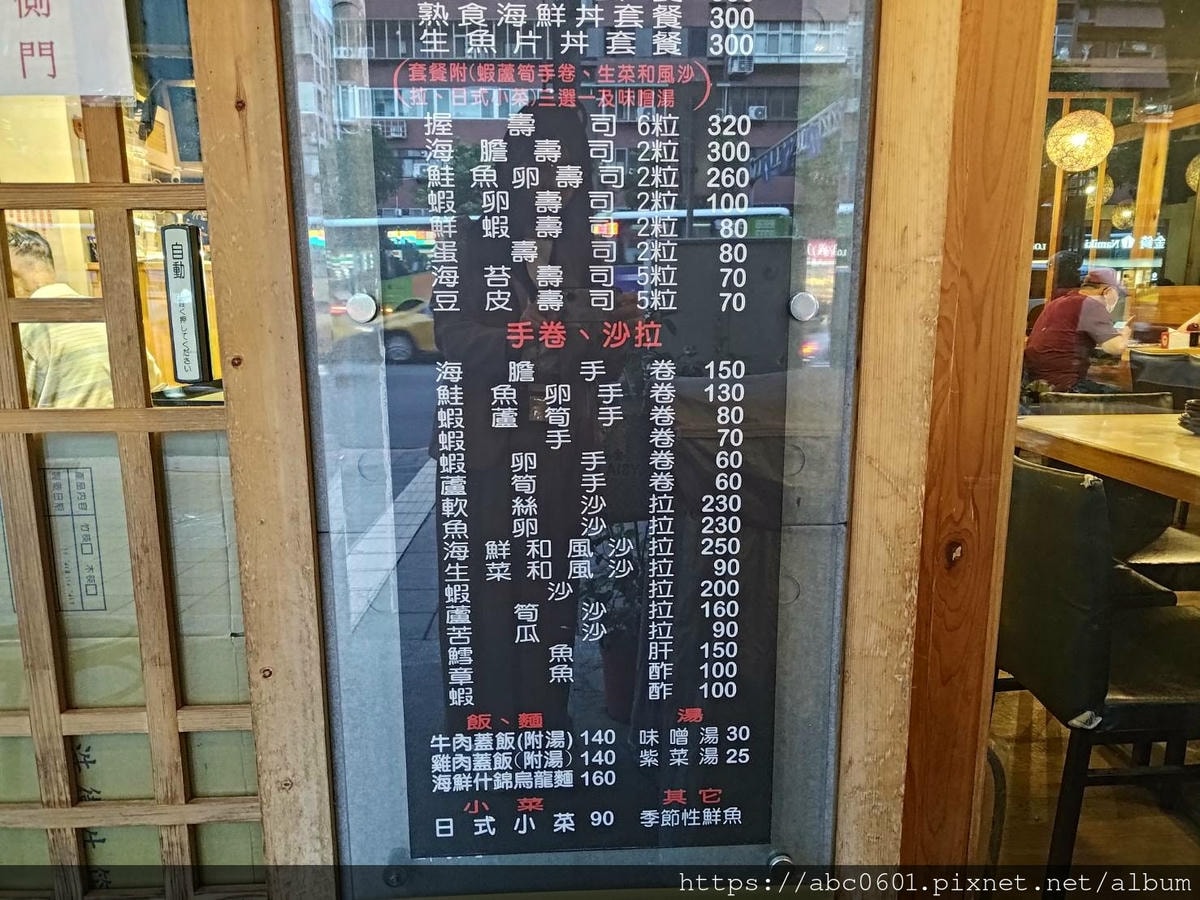 側門
熟食海鮮丼套餐 300
生魚片丼套餐 300
(套餐附(蝦蘆筍手卷、生菜和風沙
拉、日式小菜)三選一及味噌湯)
握壽司 6粒 320
海膽壽司 2粒 300
鮭魚卵壽司 2粒 260
蝦卵壽司 2粒 100
鮮蝦壽司 2粒 80
蛋壽司 2粒 80
海苔壽司 5粒 70
豆皮壽司 5粒 70
手卷、沙拉
海膽手卷 150
鮭魚卵手卷 130
蝦蘆筍手卷 80
蝦手卷 70
蝦卵手卷 60
蘆筍手卷 60
軟絲沙拉 230
魚卵沙拉 230
海鮮和風沙拉 250
生菜和風沙拉 90
蝦沙拉 200
蘆筍沙拉 160
苦瓜沙拉 90
鱈魚肝 150
章魚酢 100
蝦酢 100
飯、麵
牛肉蓋飯(附湯) 140
雞肉蓋飯(附湯) 140
海鮮什錦烏龍麵 160
湯
味噌湯 30
紫菜湯 25
小菜
日式小菜 90
其它
季節性鮮魚
自動
https://abc0601.pixnet.net/album